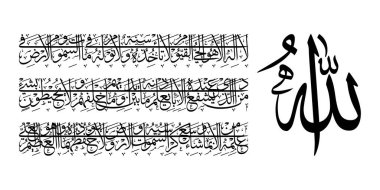 الله
الله لا إله إلا هو الحي القيوم لا تأخذه سنة ولا نوم له ما في السموات وما في الأرض
من ذا الذي يشفع عنده إلا بإذنه يعلم ما بين أيديهم وما خلفهم ولا يحيطون
بشيء من علمه إلا بما شاء وسع كرسيه السموات والأرض ولا يؤده حفظهما وهو العلي العظيم